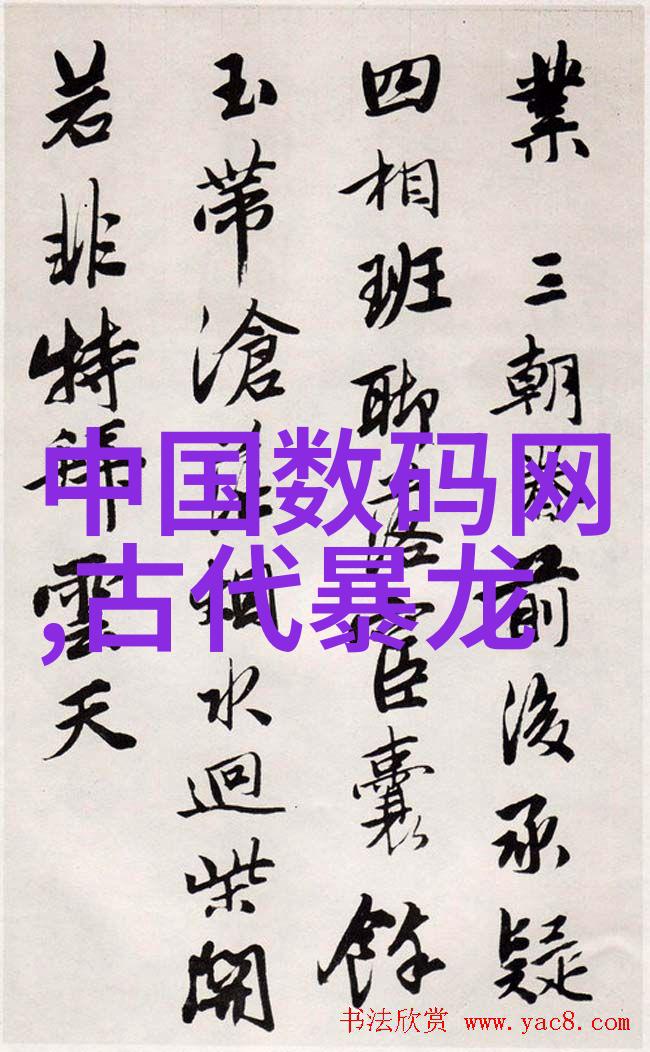 業 三朝前後承疑
四相班聊臣囊餘
玉帶滄水迴柴開
若非特雲天
中国数码网
,古代暴龙
书法欣赏 www.yac8.com